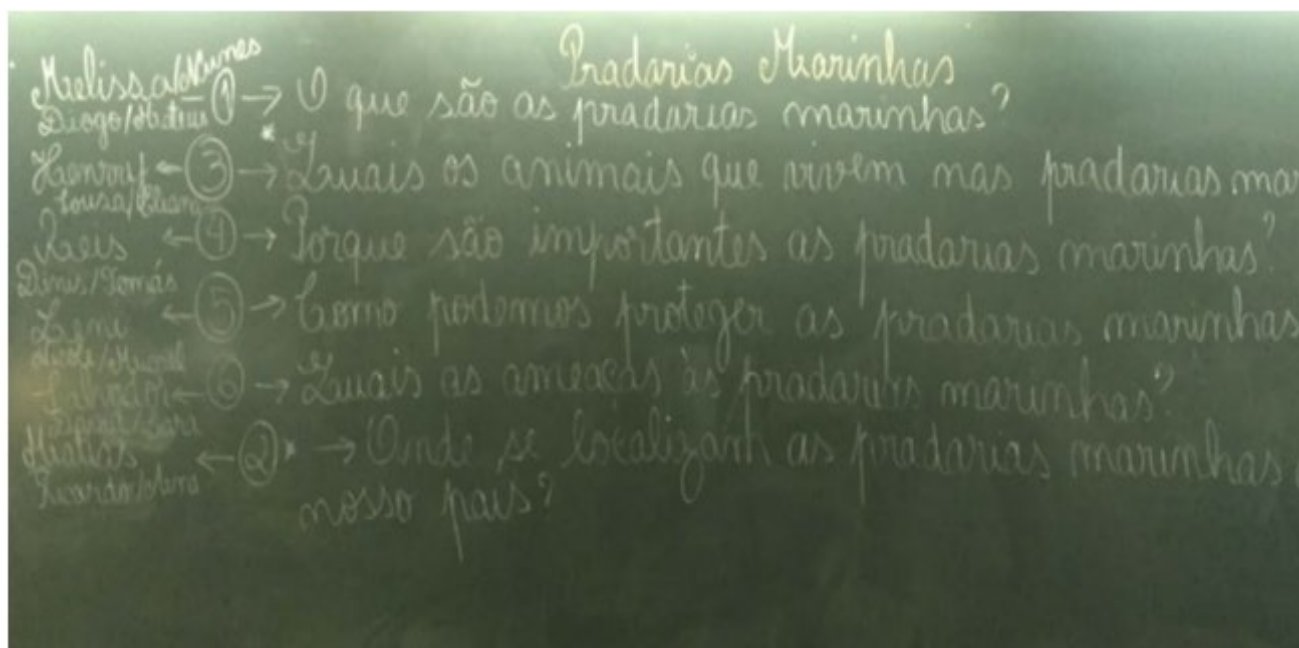 Pradarias Marinhas
Melissa Nunes
Diogo/ ① → O que são as pradarias marinhas?
Henry ← ③ → Quais os animais que vivem nas pradarias mar
Sousa/
Reis ← ④ → Porque são importantes as pradarias marinhas?
Dinis/Tomás
Leni ← ⑤ → Como podemos proteger as pradarias marinhas
Salvador ← ⑥ → Quais as ameaças às pradarias marinhas?
Matias ← ② → Onde se localizam as pradarias marinhas
Ricardo/ nosso país?